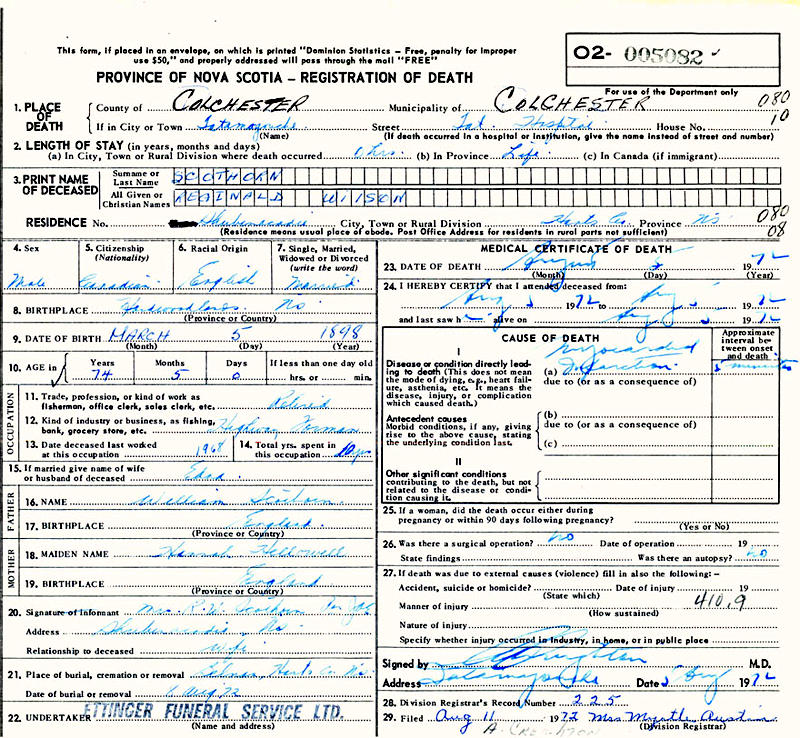 This form, if placed in an envelope, on which is printed "Dominion Statistics – Free, penalty for improper
use $50," and properly addressed will pass through the mail "FREE"
O2- 005082
PROVINCE OF NOVA SCOTIA – REGISTRATION OF DEATH
For use of the Department only
1. PLACE OF DEATH
County of COLCHESTER Municipality of COLCHESTER 080
If in City or Town Tatamagouche Street Tat. Hospital House No. 10
(Name) (If death occurred in a hospital or institution, give the name instead of street and number)
2. LENGTH OF STAY (in years, months and days)
(a) In City, Town or Rural Division where death occurred hrs. (b) In Province Life (c) In Canada (if immigrant)
3. PRINT NAME OF DECEASED
Surname or Last Name SCOTHORN
All Given or Christian Names REGINALD WILSON
RESIDENCE No. Shubenacadie City, Town or Rural Division Hants Co. Province NS 080
(Residence means usual place of abode. Post Office Address for residents in rural parts not sufficient) 08
4. Sex
Male
5. Citizenship
(Nationality)
Canadian
6. Racial Origin
English
7. Single, Married,
Widowed or Divorced
(write the word)
Married
8. BIRTHPLACE Hardwoodlands NS
(Province or Country)
9. DATE OF BIRTH MARCH 5 1898
(Month) (Day) (Year)
10. AGE in
Years Months Days If less than one day old
74 5 0 hrs. or min.
OCCUPATION
11. Trade, profession, or kind of work as
fisherman, office clerk, sales clerk, etc. Retired
12. Kind of industry or business, as fishing,
bank, grocery store, etc. Highway Forman
13. Date deceased last worked
at this occupation 1968
14. Total yrs. spent in
this occupation 10 yrs
15. If married give name of wife
or husband of deceased Edna
FATHER
16. NAME William Scothorn
17. BIRTHPLACE England
(Province or Country)
MOTHER
18. MAIDEN NAME Hannah Hellowell
19. BIRTHPLACE England
(Province or Country)
20. Signature of Informant Mrs. R. W. Scothorn
Address Shubenacadie NS
Relationship to deceased Wife
21. Place of burial, cremation or removal Hants Co NS
Date of burial or removal Aug 72
22. UNDERTAKER ETTINGER FUNERAL SERVICE LTD.
(Name and address)
MEDICAL CERTIFICATE OF DEATH
23. DATE OF DEATH August 5 1972
(Month) (Day) (Year)
24. I HEREBY CERTIFY that I attended deceased from:
Aug 5 1972 to Aug 5 1972
and last saw h alive on Aug 5 1972
CAUSE OF DEATH
Approximate
interval be-
tween onset
and death
I
Disease or condition directly lead-
ing to death (This does not mean
the mode of dying, e.g., heart fail-
ure, asthenia, etc. It means the
disease, injury, or complication
which caused death.)
(a) Myocardial Infarction 5 minutes
due to (or as a consequence of)
Antecedent causes
Morbid conditions, if any, giving
rise to the above cause, stating
the underlying condition last.
(b)
due to (or as a consequence of)
(c)
II
Other significant conditions
contributing to the death, but not
related to the disease or condi-
tion causing it.
25. If a woman, did the death occur either during
pregnancy or within 90 days following pregnancy?
(Yes or No)
26. Was there a surgical operation? no Date of operation 19
State findings Was there an autopsy? no
27. If death was due to external causes (violence) fill in also the following: –
Accident, suicide or homicide? Date of injury 19
(State which)
Manner of injury 410.9
(How sustained)
Nature of injury
Specify whether injury occurred in Industry, in home, or in public place
Signed by M.D.
Address Tatamagouche Date 5 Aug 1972
28. Division Registrar's Record Number 225
29. Filed Aug 11 1972 Mrs Myrtle Austin
(Division Registrar)
A. CREIGHTON